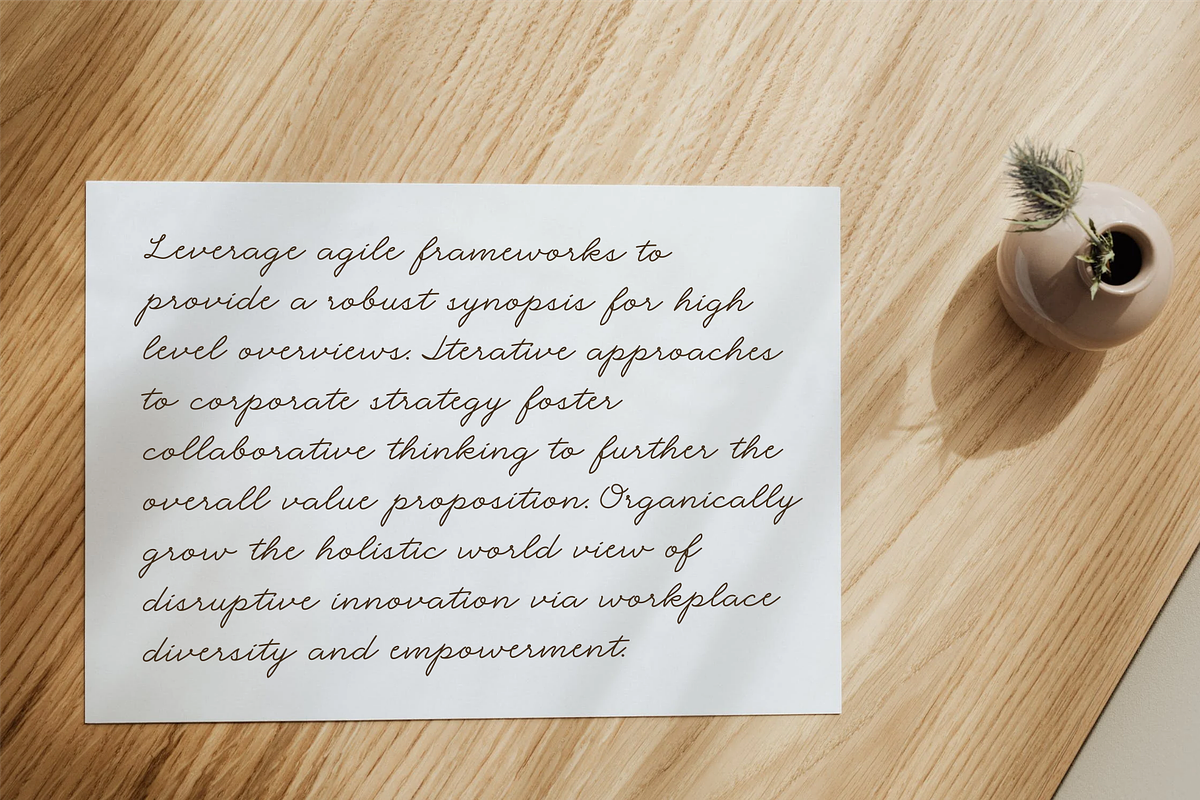 Leverage agile frameworks to
provide a robust synopsis for high
level overviews. Iterative approaches
to corporate strategy foster
collaborative thinking to further the
overall value proposition. Organically
grow the holistic world view of
disruptive innovation via workplace
diversity and empowerment.